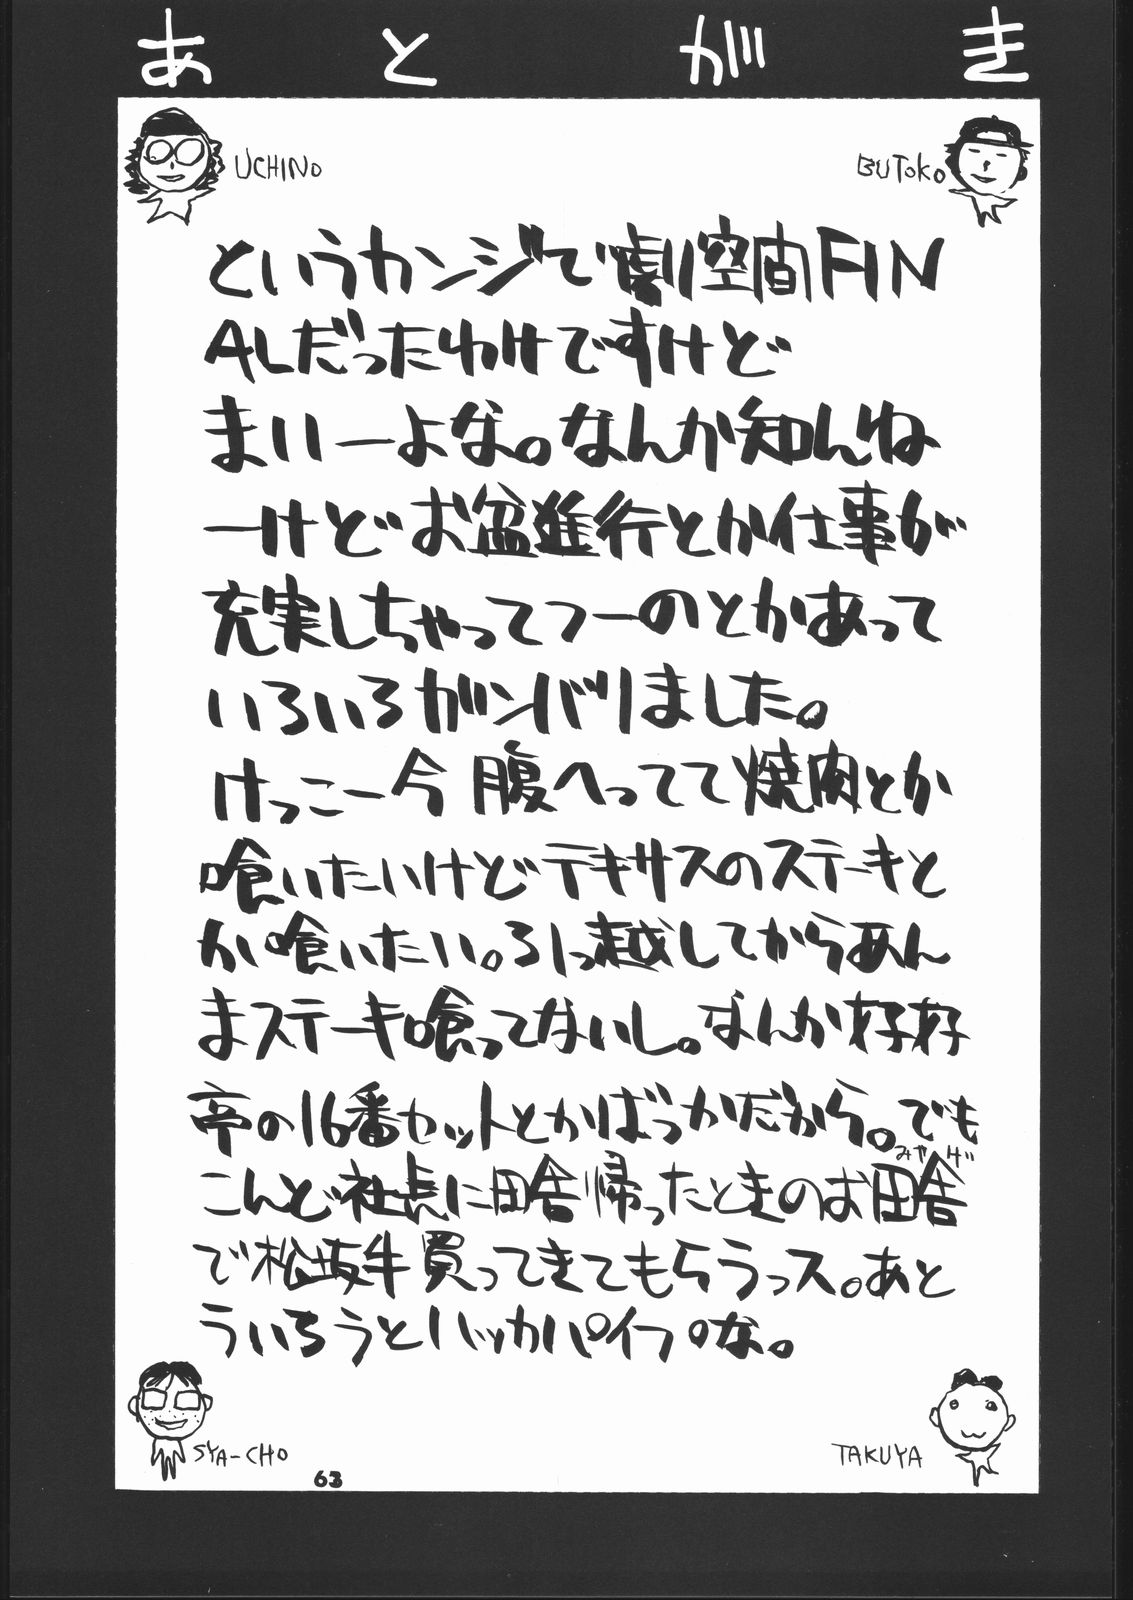 あとがき
UCHINO
BUToKo
というカンジで劇空間FIN
ALだったわけですけど
まいーよな。なんか知んね
ーけどお盆進行とか仕事が
充実しちゃってつーのとかあって
いろいろガンバりました。
けっこー今腹へってて焼肉とか
喰いたいけどテキサスのステーキと
か喰いたい。引っ越してからあん
まステーキ喰ってないし。なんか好好
亭の16番セットとかばっかだから。でも
みやげ
こんど社長に田舎帰ったときのお田舎
で松坂牛買ってきてもらうっス。あと
ういろうとハッカパイプな。
SYA-CHO
TAKUYA
63